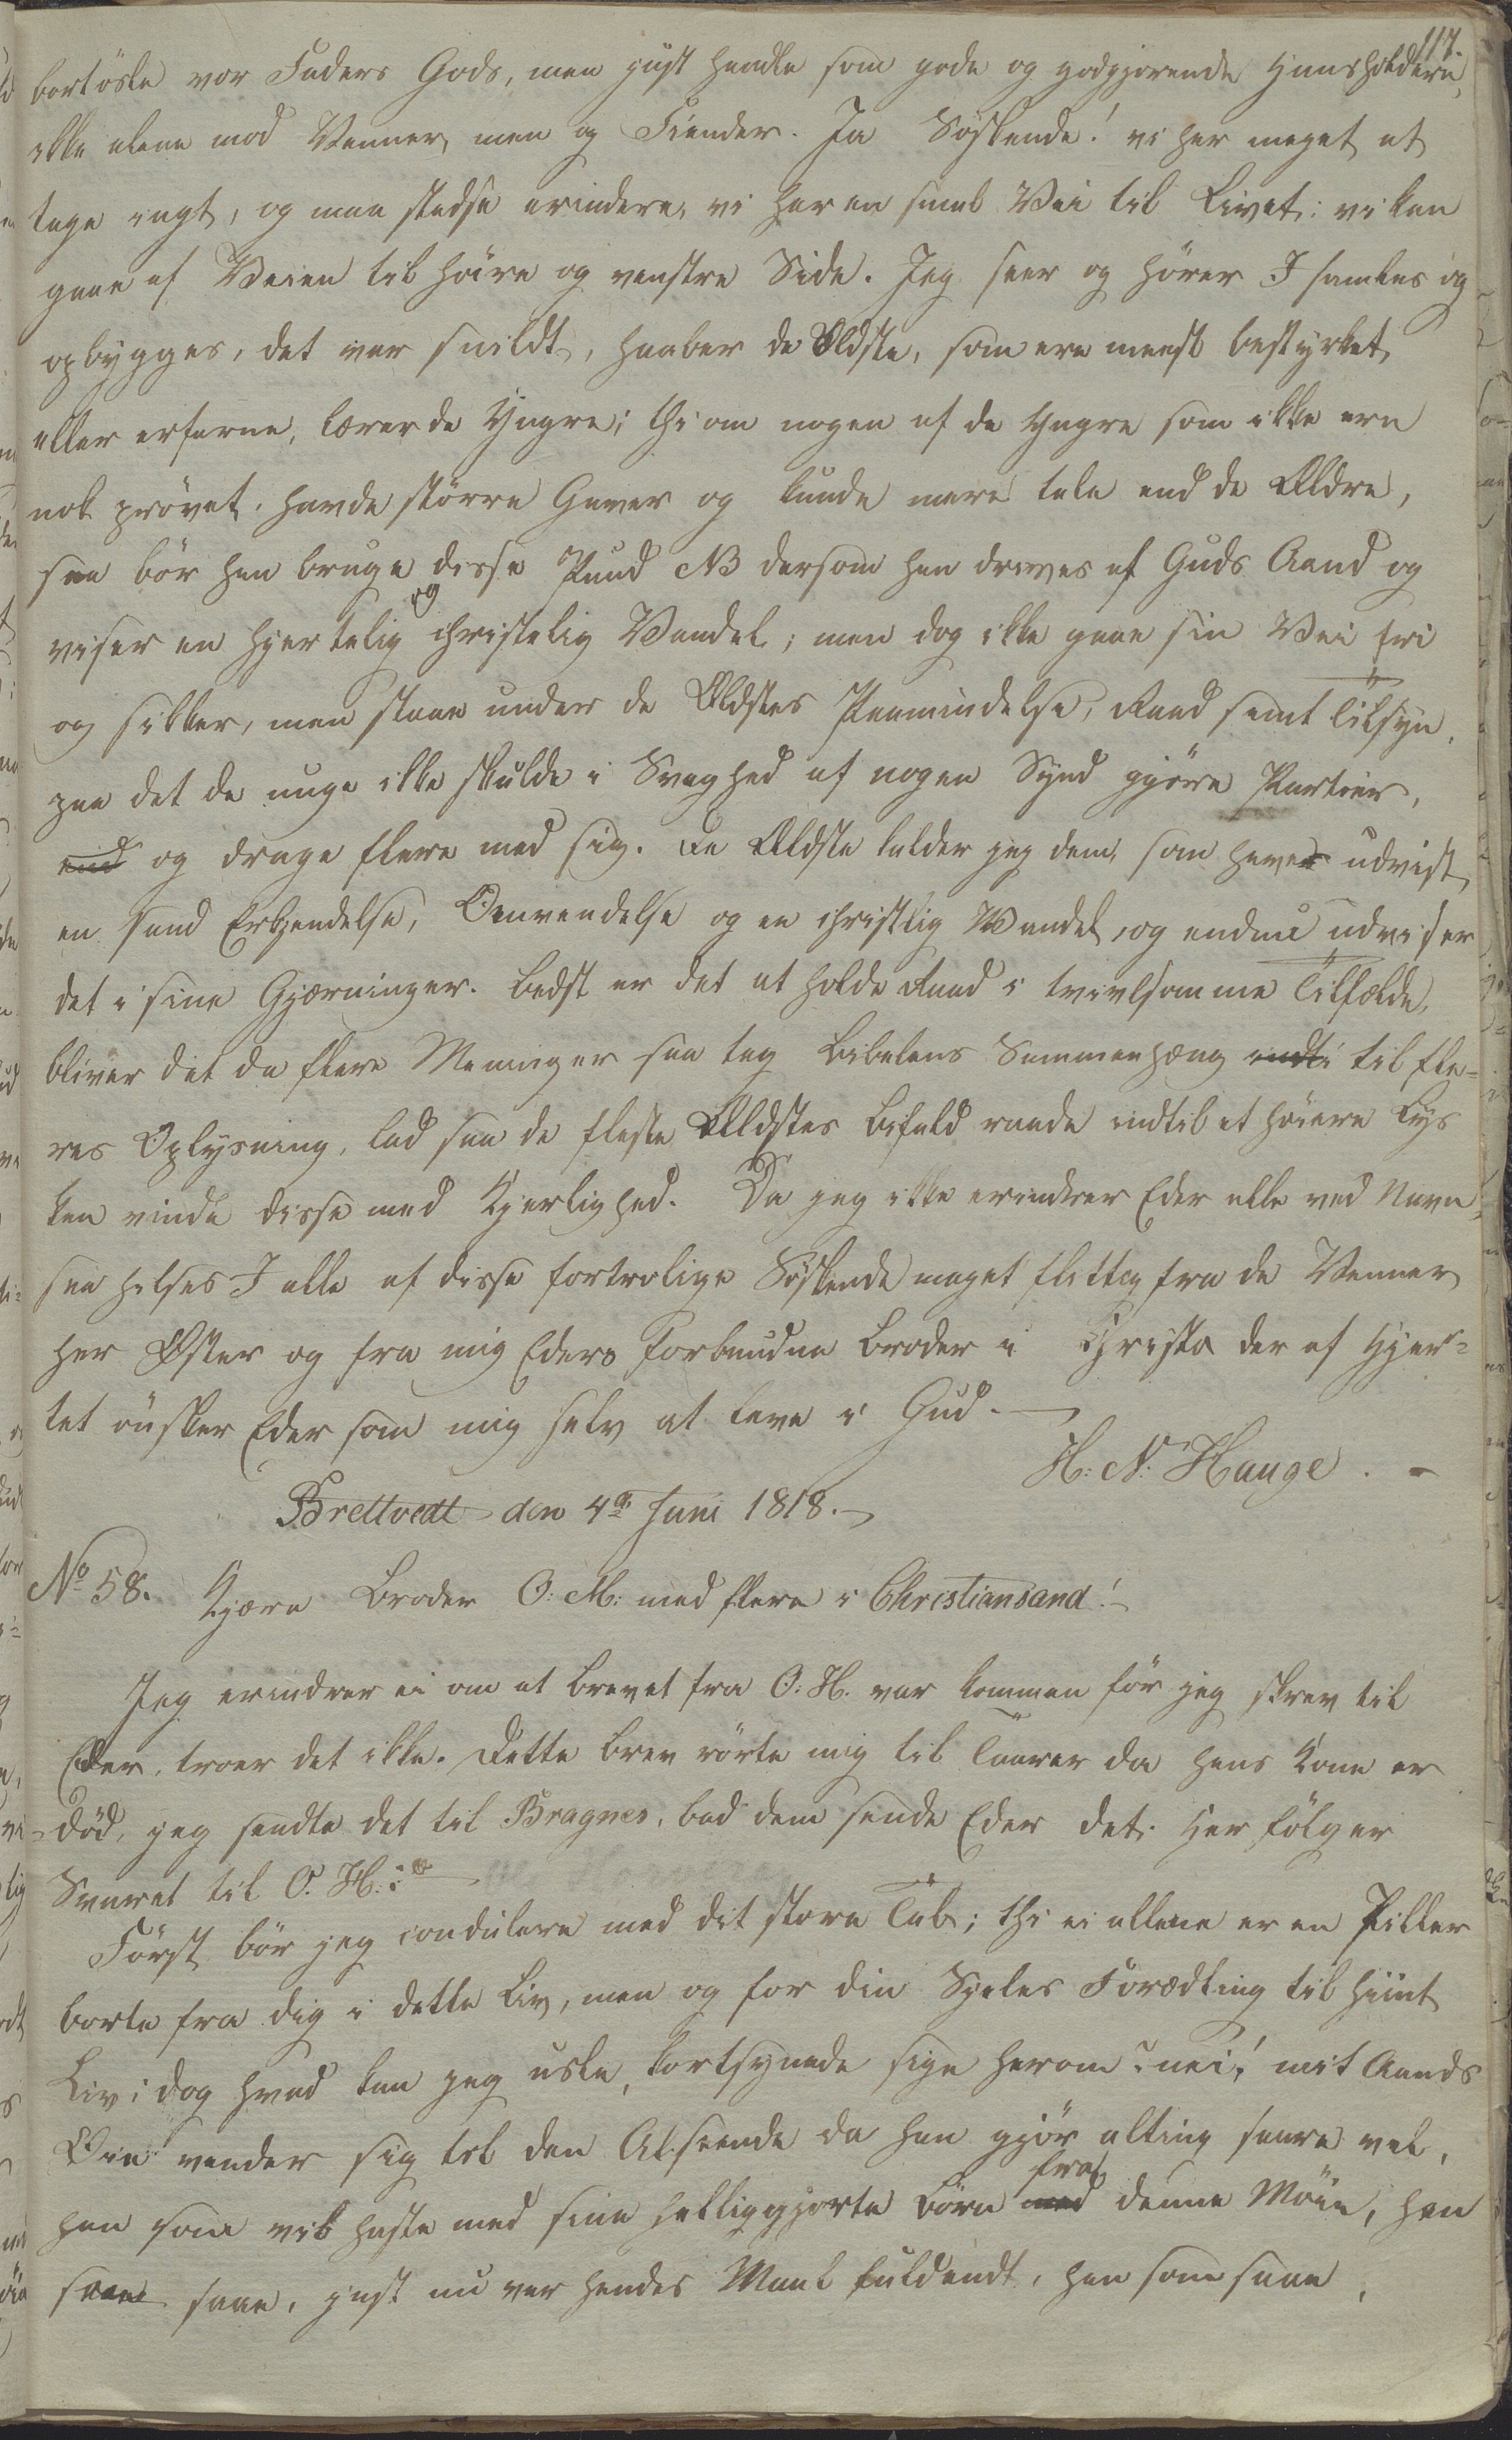 117.
bortösle vor Faders Gods, men just handle som gode og godgjörende Huusholdere,
ikke alene mod Venner, men og Fiender. Ja Söskende! vi har meget at
tage vagt, og maa stedse erindre, vi har en smal Vei til Livet: vi kan
gaae af Veien til höire og venstre Side. Jeg seer og hörer I samles og
opbygges, det var snildt, haaber de Ældste, som ere meest bestyrket
eller erfarne, lærer de Yngre; thi om nogen af de Yngre som ikke ere
nok prövet, havde större Gaver og kunde mere tale end de Ældre,
saa bör han bruge disse Pund NB dersom han drives af Guds Aand og
viser en hjertelig og christelig Vandel; men dog ikke gaae sin Vei fri
og sikker, men staae under de Ældstes Paamindelse, Raad samt Tilsyn,
paa det de unge ikke skulde i Svaghed af nogen Synd gjöre Partier,
end og drage flere med sig. De Ældste kalder jeg dem, som haver udvist
en sand Erkjendelse, Omvendelse og en christlig Vandel, og endnu udviser
det i sine Gjærninger. Bedst er det at holde Raad i tvivlsomme Tilfælde,
bliver det da flere Meninger saa tag Bibelens Sammenhæng indti til fle-
res Oplysning, lad saa de fleste Ældstes Bifald raade indtil et höiere Lys
kan vinde disse med Kjerlighed. Da jeg ikke erindrer Eder alle ved Navn,
saa hilses I alle af disse fortrolige Söskende meget flittig fra de Venner
her Öster og fra mig Eders forbundne Broder i Christo der af Hjer-
tet önsker Eder som mig selv at leve i Gud.
H: N: Hauge.
Brettvedt den 4de Juni 1818.
No 58. Kjære Broder O: M: med flere i Christiansand!
Jeg erindrer ei om at Brevet fra O: H. var kommen för jeg skrev til
Eder, troer det ikke. Dette Brev rörte mig til Taarer da hans Kone er
död, jeg sendte det til Bragnes, bad dem sende Eder det. Her fölger
Svaret til O. H.:
Först bör jeg condulere med dit store Tab; thi ei allene er en Piller
borte fra dig i dette Liv, men og for din Sjeles Forædling til hiint
Liv; dog hvad kan jeg usle, kortsynede sige herom? nei! mit Aands
Öie vender sig til den Alseende da han gjör alting saare vel,
han som vil haste med sine helliggjorte Börn med fra denne Möie, han
saae saae, just nu var hendes Maal fuldendt, han som saae,